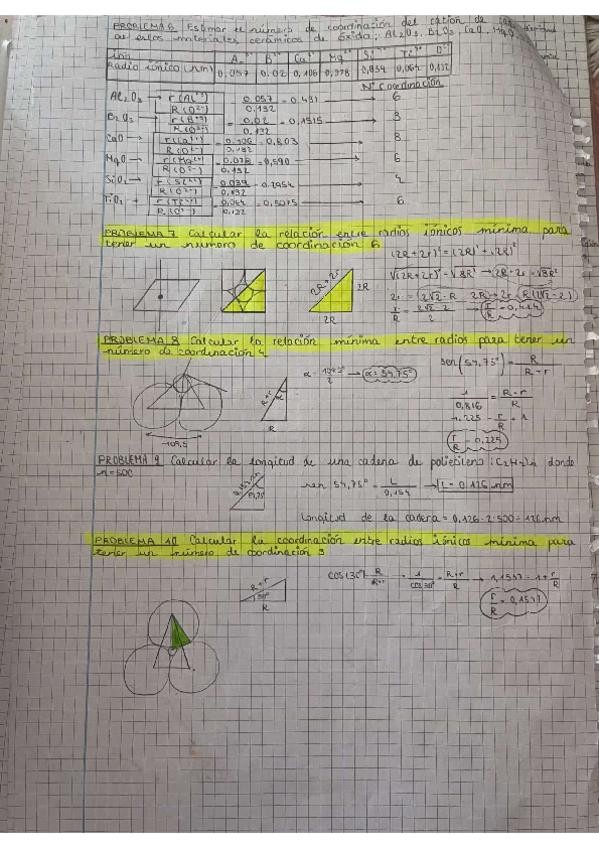 PROBLEMA 6 Estimar el número de coordinación del catión de
estos materiales cerámicos de óxido: Al2O3, B2O3, CaO, MgO
Radio iónico (nm) 0,057 0,02 0,106 0,078 0,039 0,064 0,132
Nº Coordinación
Al2O3 → r(Al3+) / R(O2-) = 0.057 / 0.132 = 0,431 → 6
B2O3 → r(B3+) / R(O2-) = 0.02 / 0.132 = 0,1515 → 3
CaO → r(Ca2+) / R(O2-) = 0.106 / 0.132 = 0,803 → 8
MgO → r(Mg2+) / R(O2-) = 0.078 / 0.132 = 0,590 → 6
SiO2 → r(Si4+) / R(O2-) = 0.039 / 0.132 = 0,2954 → 4
TiO2 → / R(O2-) 0.132 → 6
PROBLEMA 7 Calcular la relación entre radios iónicos mínima para
tener un numero de coordinación 6
(2R+2r)² = (2R)² + (2R)²
2R+2r
2R
2R
√(2R+2r)² = √8R²
r/R = 2√2-2 / 2 → r/R = 0,414
PROBLEMA 8 Calcular la relación mínima entre radios para tener un
número de coordinación 4
α = 54,75°
sen(54,75°) = R / R+r
R+r
R
1 / 0,816 = R+r / R
1.225 = r/R + 1
r/R = 0,225
109,5
PROBLEMA 9 Calcular la longitud de una cadena de polietileno (C2H4)n donde
n=500
sen 54,75° = L / 0,154 → L = 0,126 nm
Longitud de la cadena = 0,126·2·500 = 126 nm
PROBLEMA 10 Calcular la coordinación entre radios iónicos mínima para
tener un número de coordinación 3
R+r
30°
R
cos(30°) R / R+r = 1 / cos 30° = R+r / R → 1,1547 = 1 + r/R